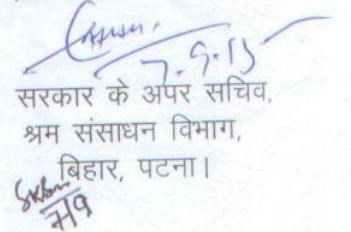 7.9.15
सरकार के अपर सचिव,
श्रम संसाधन विभाग,
बिहार, पटना।
7/9